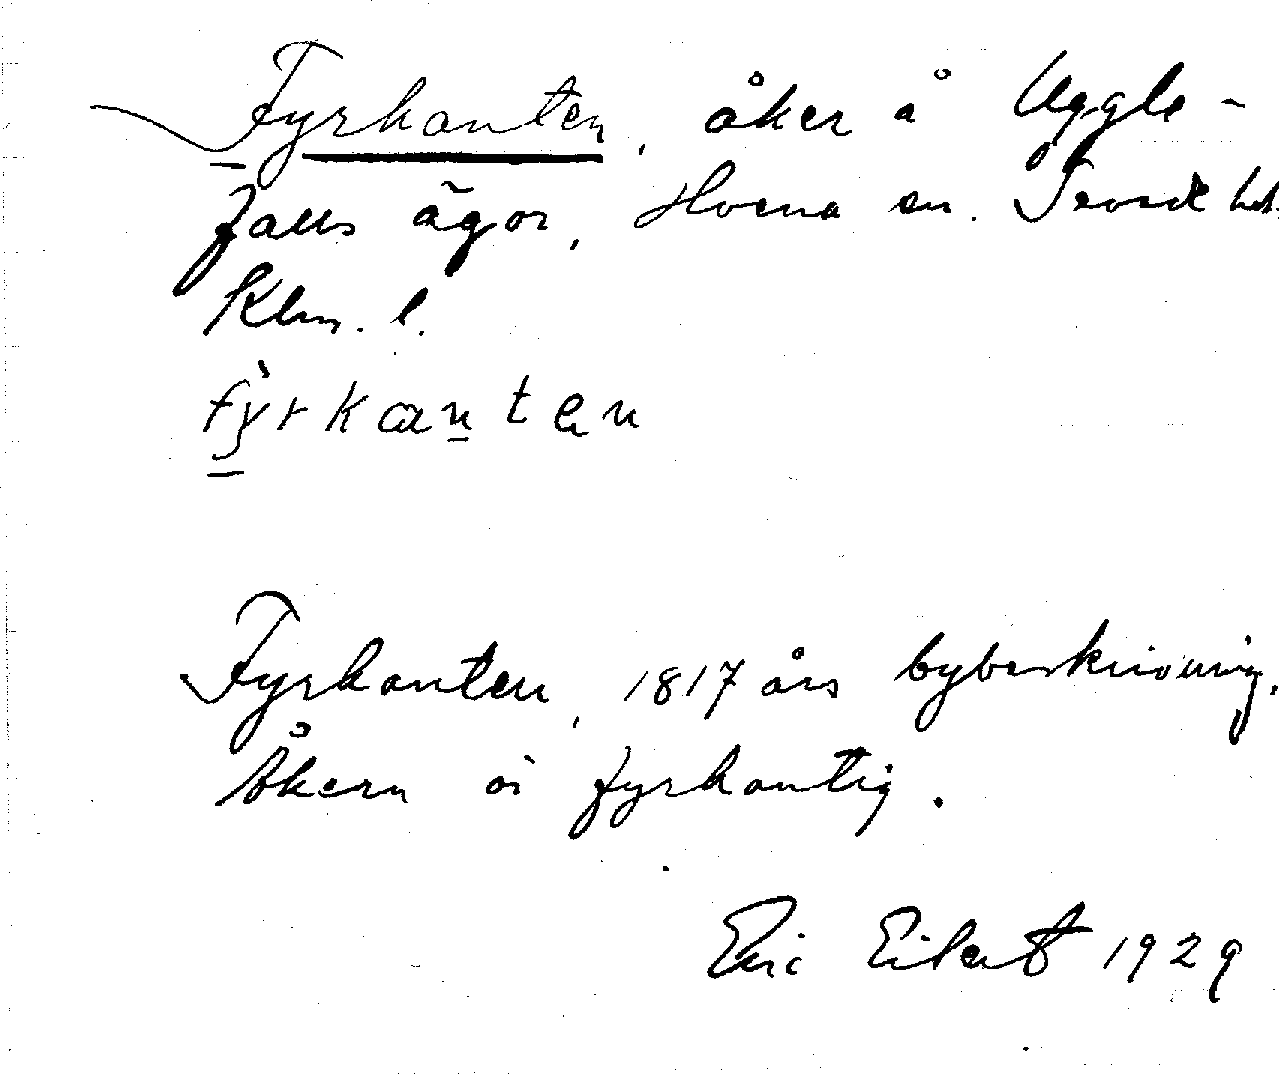 Fyrkanten, åker å Uggle-
falls ägor, Hvena sn. Sevede hd.
Klm. l.
fỳrkanten
Fyrkanten, 1817 års bybeskrivning.
Åkern är fyrkantig.
Eric Eilert 1929